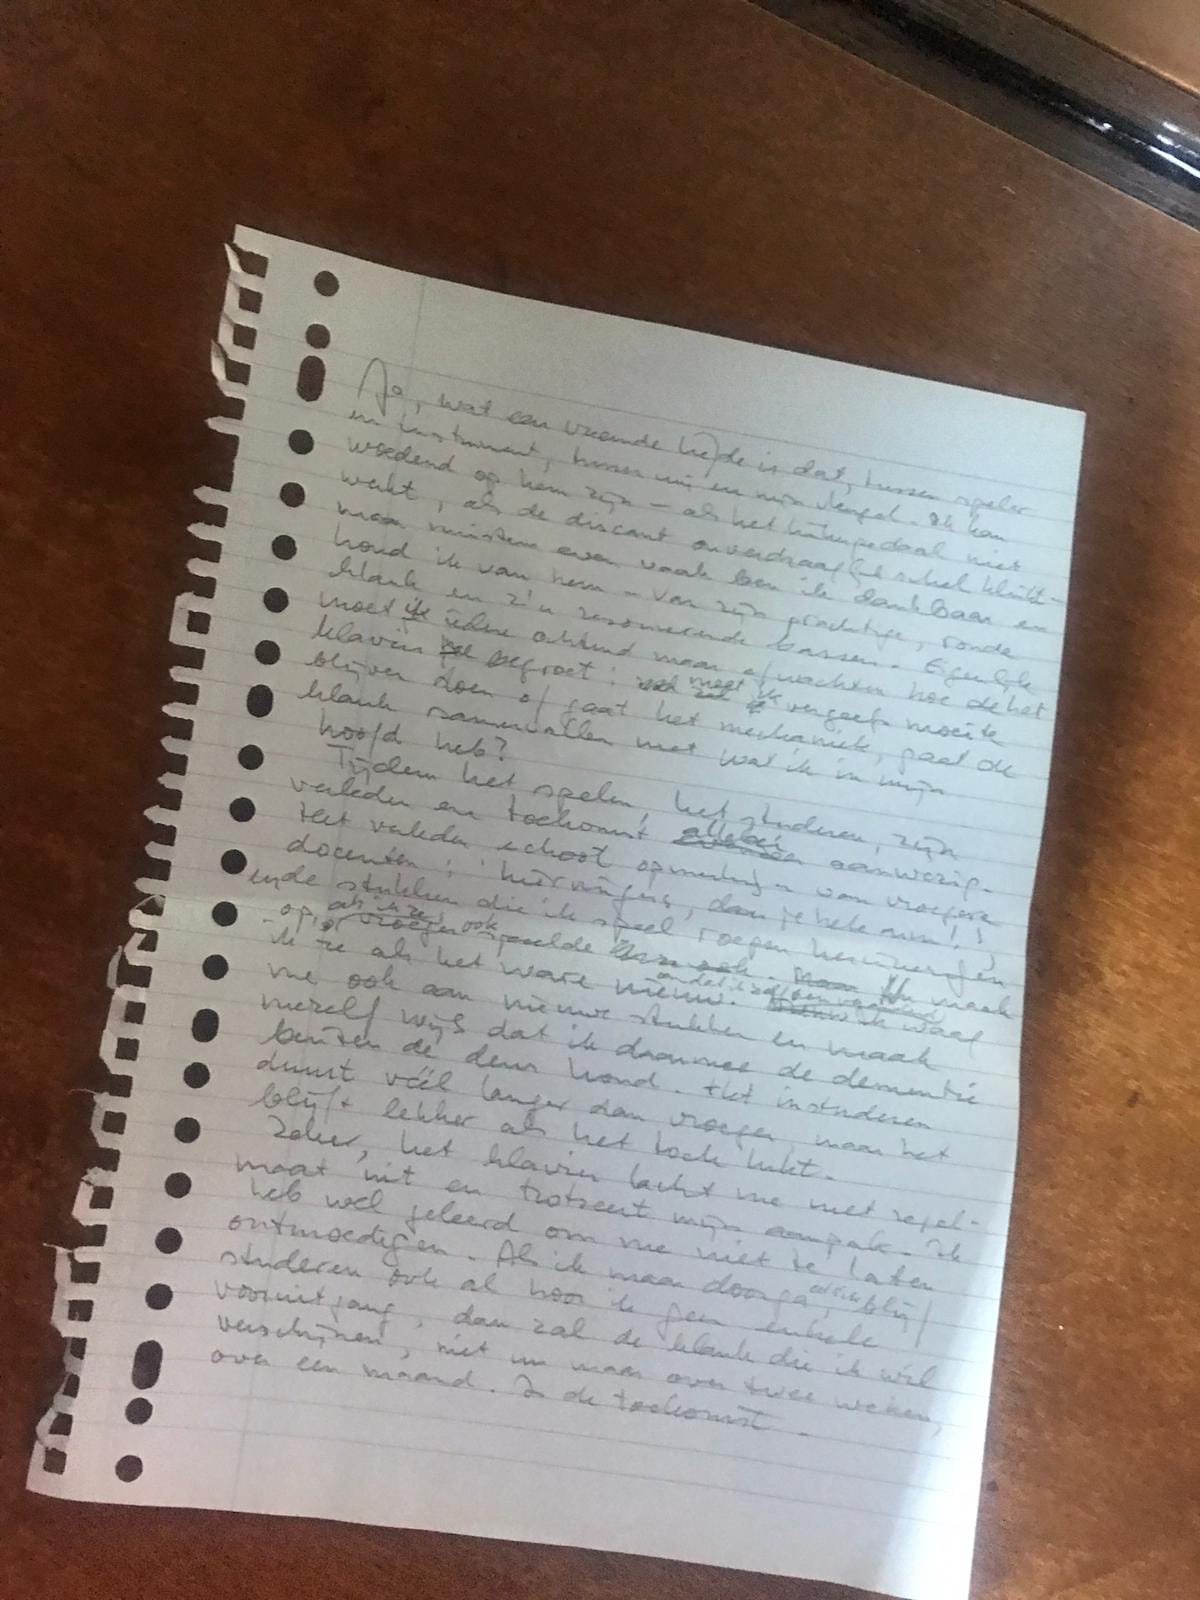 Ja, wat een vreemde liefde is dat, tussen speler
en instrument, tussen mij en mijn vleugel. Ik kan
woedend op hem zijn – als het linkerpedaal niet
werkt, als de discant onverdraaglijk schel klinkt –
maar minstens even vaak ben ik dankbaar en
houd ik van hem – van zijn prachtige, ronde
klank en z'n resonerende bassen. Eigenlijk
moet ik iedere ochtend maar afwachten hoe het
klavier me begroet: moet ik vergeefs moeite
blijven doen of gaat het mechaniek, gaat de
klank samenvallen met wat ik in mijn
hoofd heb?
Tijdens het spelen, het studeren, zijn
verleden en toekomst allebei aanwezig.
Het verleden echoot opmerkingen van vroegere
docenten: 'hiervingers, dan je hele arm!',
en de stukken die ik speel roepen herinneringen
op, als ik ze vroeger ook speelde. Nu maak
ik ze als het ware nieuw. Ik waag
me ook aan nieuwe stukken en maak
mezelf wijs dat ik daarmee de dementie
buiten de deur houd. Het instuderen
duurt véél langer dan vroeger, maar het
blijft lekker als het toch lukt.
Zeker, het klavier lacht me met regel-
maat uit en trotseert mijn aanpak. Ik
heb wel geleerd om me niet te laten
ontmoedigen. Als ik maar doorga, als ik blijf
studeren ook al hoor ik geen enkele
vooruitgang, dan zal de klank die ik wil
verschijnen, niet nu maar over twee weken,
over een maand. In de toekomst.